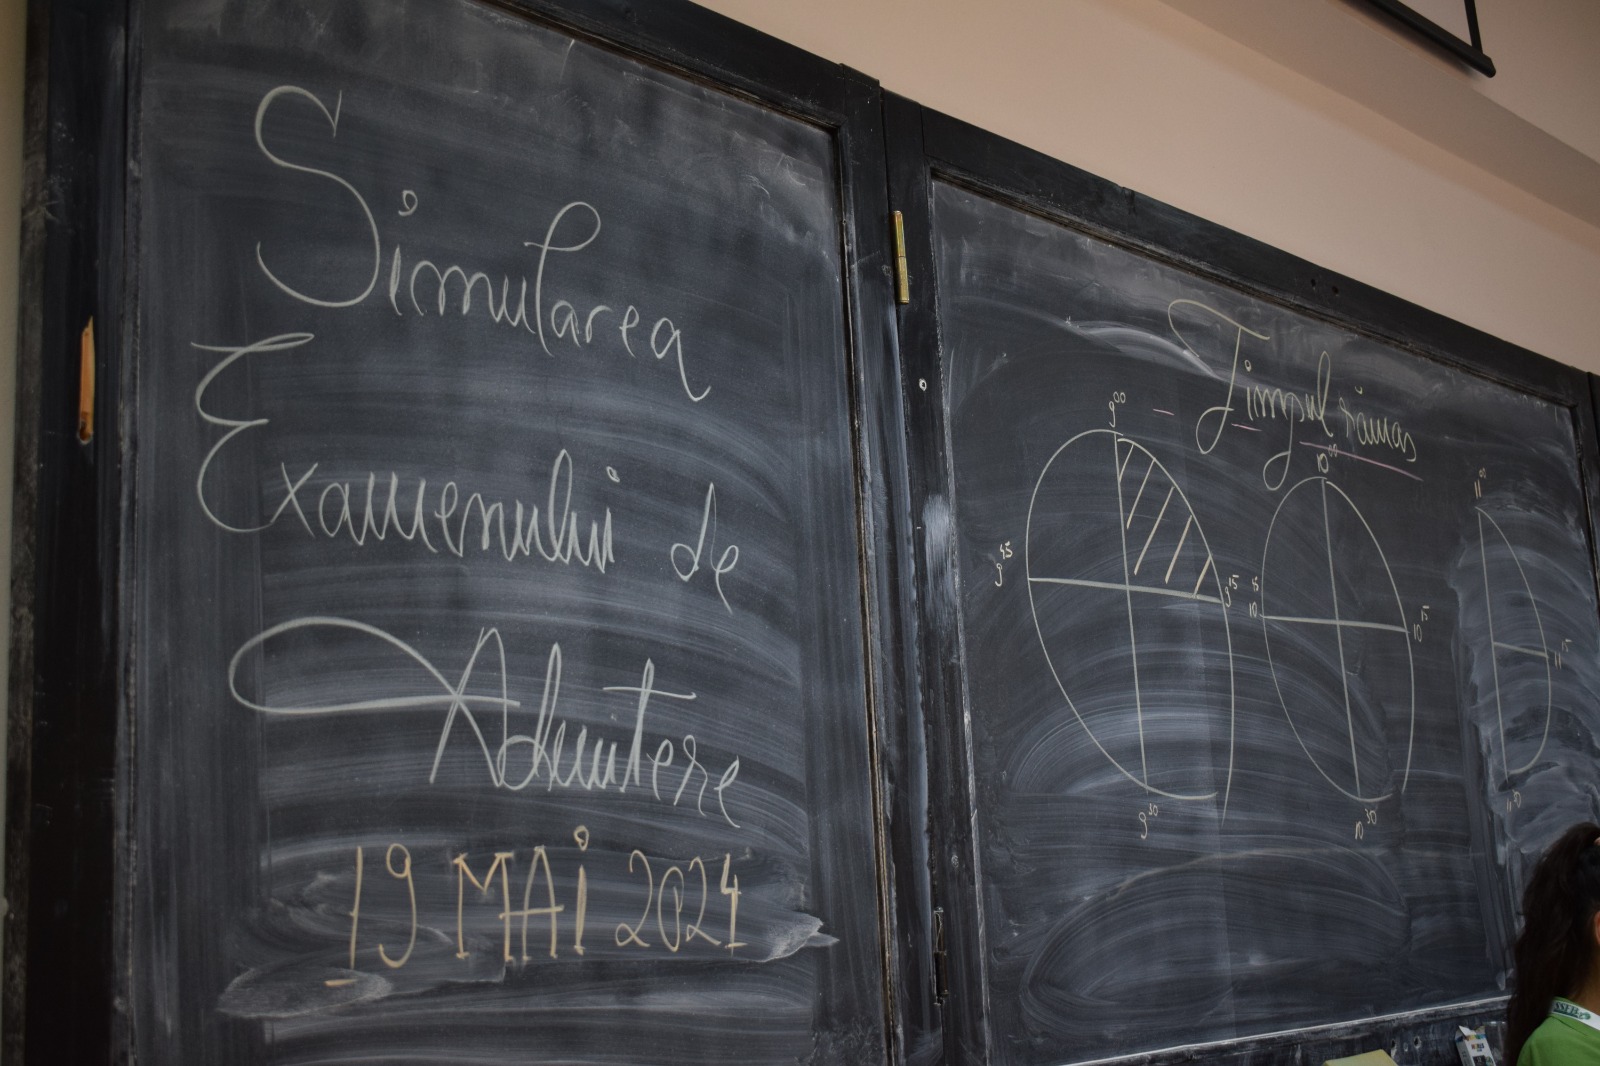 Simularea
Examenului de
Admitere
19 MAI 2024
Timpul rămas
9⁰⁰
9⁴⁵
9¹⁵
9³⁰
10⁰⁰
10¹⁵
10³⁰
11⁰⁰
11¹⁵